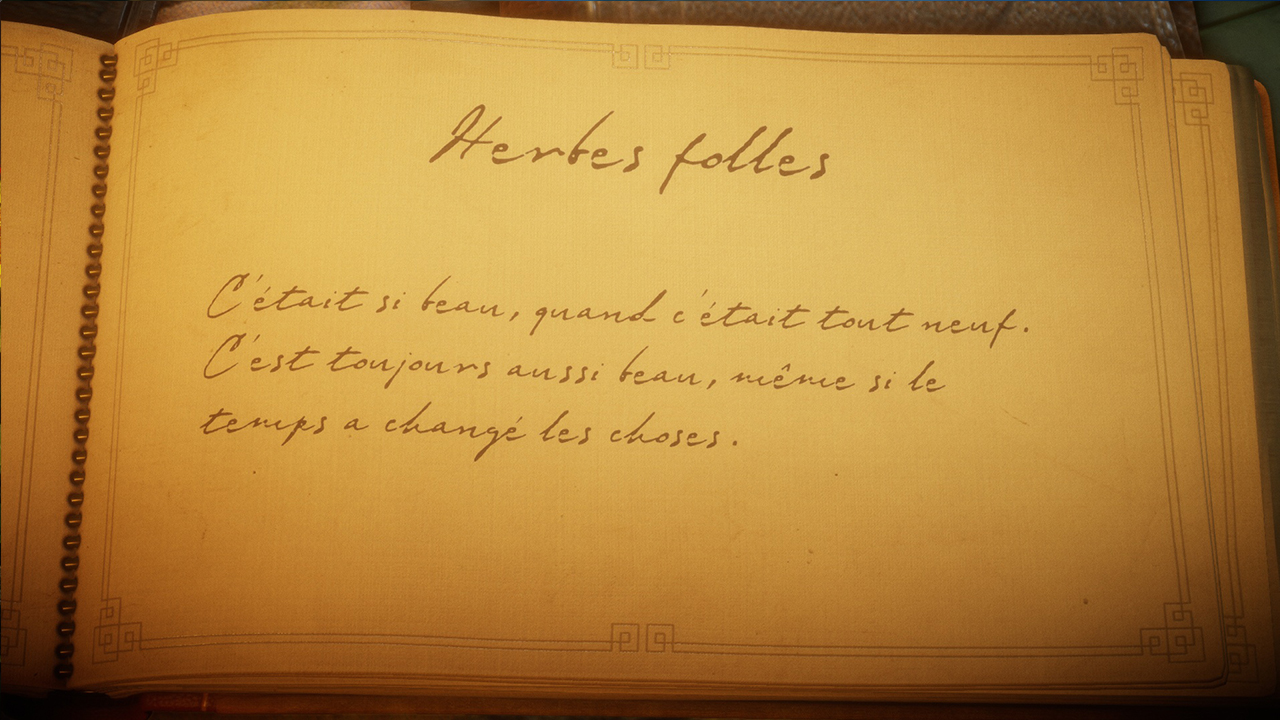 Herbes folles
C'était si beau, quand c'était tout neuf.
C'est toujours aussi beau, même si le
temps a changé les choses.